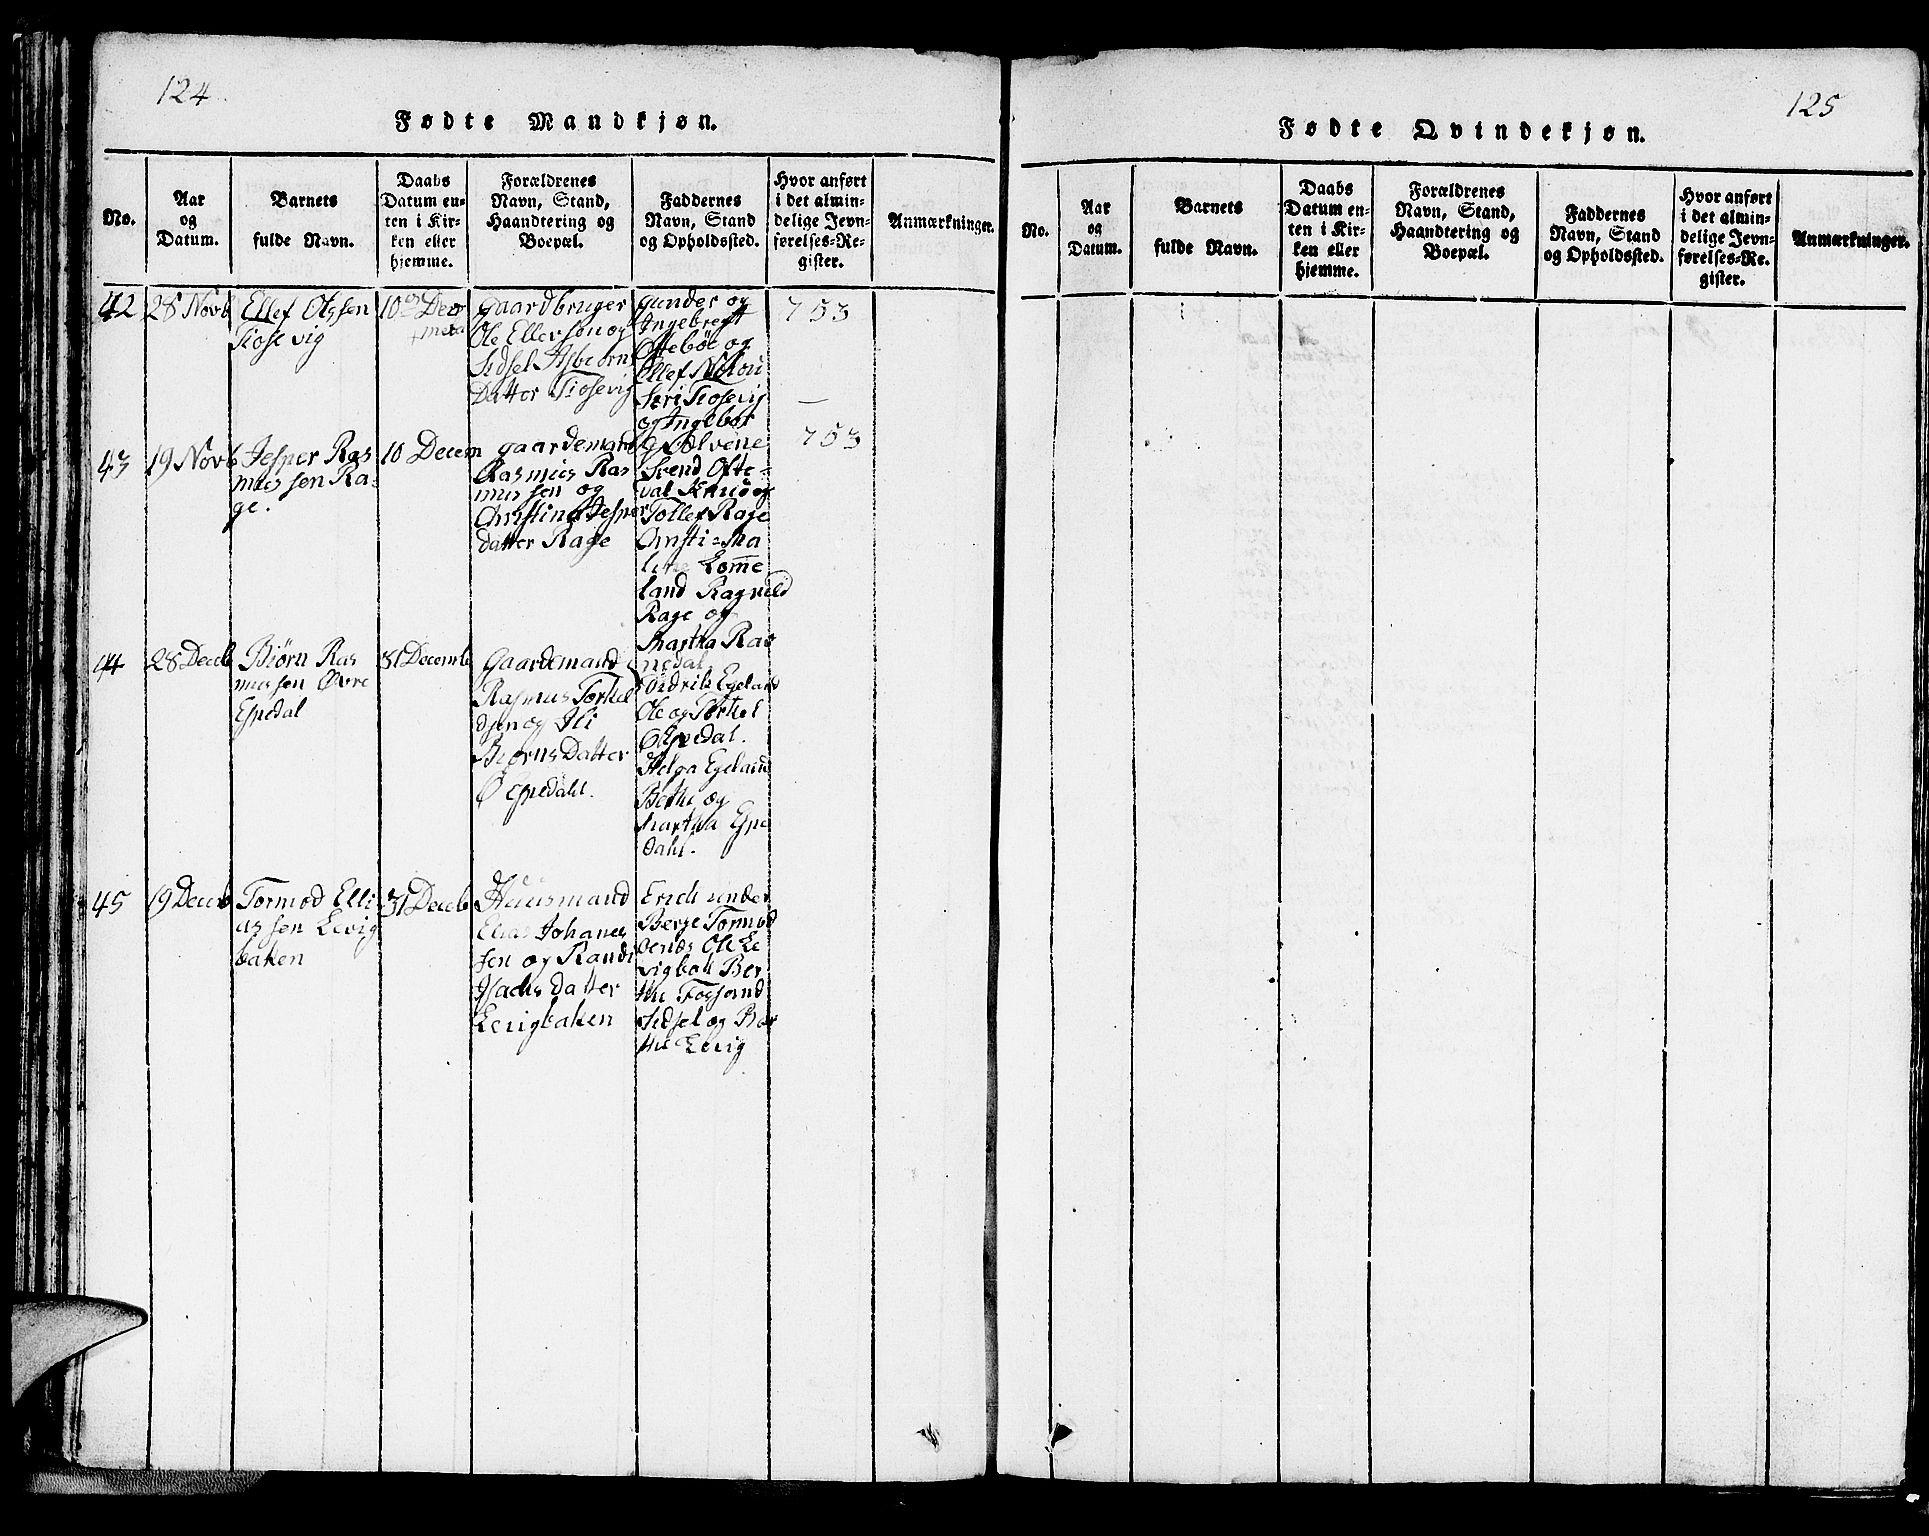 124
Fødte Mandkjøn.
No.
Aar
og
Datum.
Barnets
fulde Navn.
Daabs
Datum en-
ten i Kir-
ken eller
hjemme.
Forældrenes
Navn, Stand,
Haandtering og
Boepæl.
Faddernes
Navn, Stand
og Opholdssted.
Hvor anført
i det almin-
delige Jevn-
førelses-Re-
gister.
Anmærkninger.
42
28 Novb
Ellef Olssen
Tiosevig
10 Dec
Gaardbruger
Ole Ellefsen og
Sidsel Asbeorns
Datter Tiosevig
Gunder og
Ingebregt
Ofteböe og
Ellef
Siri Tiosevig
og Ingebor
753
43
19 Novb
Jesper Ras
mussen Ra-
ge.
10 Decem
gaardemand
Rasmus Ras
mussen og
Christina Jesper
datter Rage
g Sælvene
Svend Ofte-
val Knud og
Tollef Rage
Christi Ma
Lomme
land Ragnild
Rage og
Martha Ras
nedal
753
44
28 Decb
Biørn Ras
mussen Øvre
Espedal
31 Decemb
Gaardemand
Rasmus Torkel
dsen og Ili
Biørns Datter
Ø Espedahl.
Didrik Egeland
Ole og Torkel
Ø Espedal.
Helga Egeland
Berthe og
Martha Espe
dahl.
45
19 Decb
Tormod Elli
assen Levig
baken
31 Decb
Huusmand
Elias Johanes
sen og Randi
Isachs datter
Levigbaken
Erich under
Berge Tormod
oenæs Ole Le
vigbak Ber
the Fossand
Sidsel og Ber
the Levig
125
Fødte Qvindekjøn.
No.
Aar
og
Datum.
Barnets
fulde Navn.
Daabs
Datum en-
ten i Kir-
ken eller
hjemme.
Forældrenes
Navn, Stand,
Haandtering og
Boepæl.
Faddernes
Navn, Stand
og Opholdssted.
Hvor anført
i det almin-
delige Jevn-
førelses-Re-
gister.
Anmærkninger.